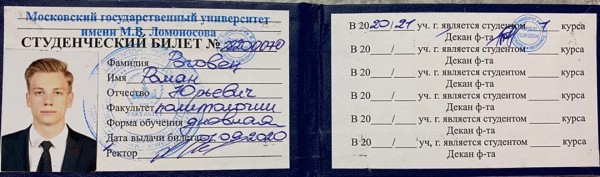 Московский государственный университет
имени М.В. Ломоносова
СТУДЕНЧЕСКИЙ БИЛЕТ №
Фамилия
Имя Роман
Отчество Юрьевич
Факультет политологии
Форма обучения дневная
Дата выдачи билета 01.09.2020
Ректор
В 2020/21 уч. г. является студентом 1 курса
Декан ф-та
В 20___/___ уч. г. является студентом ______ курса
Декан ф-та
В 20___/___ уч. г. является студентом ______ курса
Декан ф-та
В 20___/___ уч. г. является студентом ______ курса
Декан ф-та
В 20___/___ уч. г. является студентом ______ курса
Декан ф-та
В 20___/___ уч. г. является студентом ______ курса
Декан ф-та